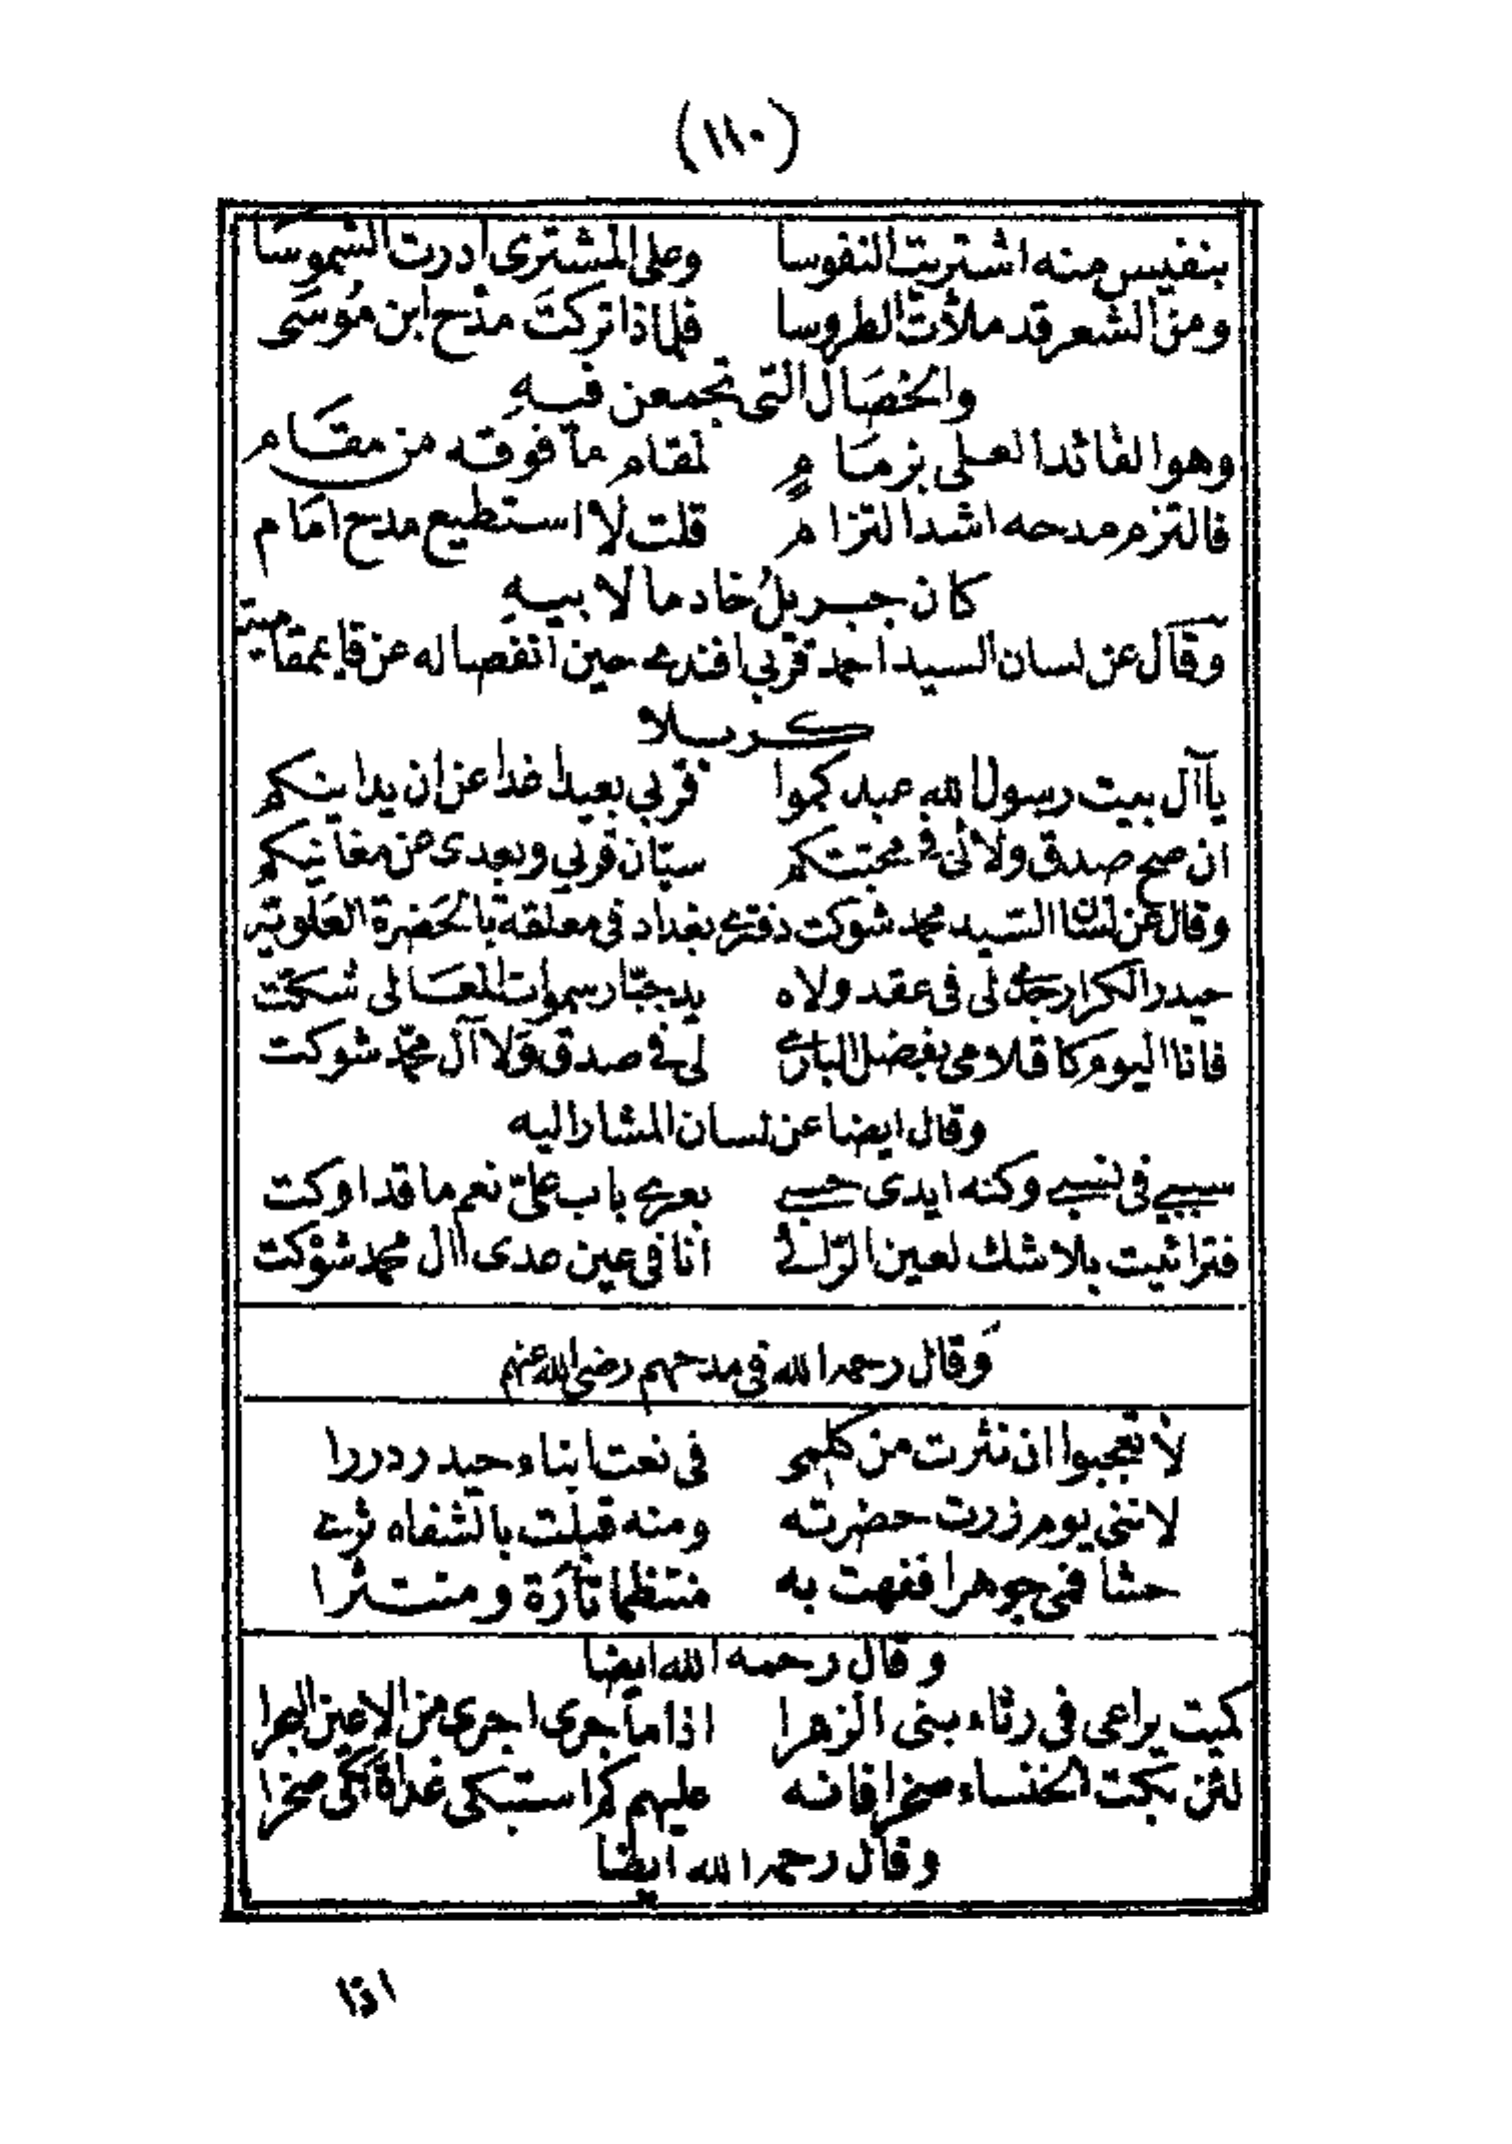 (١١٠)
بنفيس منه اشتريت النفوسا وعلى المشترى ادرت الشموسا
ومن الشعر قد ملأت الطروسا فلماذا تركتَ مدْح ابن مُوسَى
والخصَال التى تجمعن فيهِ
وهو القائد العلى بزمَامٍ لمقام ما فوقه من مقَام
فالتزم مدحه اشد التزام قلت لا استطيع مدح امَام
كان جبريلُ خادما لابيهِ
وقال عن لسان السيد احمد قربي افندى حين انفصاله عن قايمقامية
كربلا
يا آل بيت رسول الله عبدكموا قربي بعيد اغدا عن ان يدانيكم
ان صح صدق ولائى فى محبتكم سيّان قربي وبعدى عن مغانيكم
وقال عن لسان السيد محمد شوكت دفترى بغداد فى معلقة بالحَضرة العَلوية
حيدر الكرار جدّ لى فى عقد ولاه يد جبّار سموات المعَالى شكّت
فانا اليوم كاقلامى بفضل البارى لى فى صدق وَلا آل محمّد شوكت
وقال ايضا عن لسان المشار اليه
سببي فى نسبي وكنه ايدى حسبي بعرى باب علىّ نعم ما قد اوكت
فترائيت بلا شك لعين الرّائى انا فى عين عدى اال محمد شوْكت
وَقال رحمه الله فى مدحهم رضى الله عنهم
لا تعجبوا ان نثرت من كلمى فى نعت ابناء حيدر دررا
لاننى يوم زرت حضرته ومنه قبلت بالشفاه ثرى
حشا فمى جوهرا ففهت به منتظما تارَة ومنتثرا
وقال رحمه الله ايضا
كميت يراعى فى رثاء بنى الزهرا اذا ما جرى اجرى من الاعين البحرا
لئن بكت الخنساء صخرا فانه عليهم كم استبكى غداة بَكَى صخرا
وقال رحمه الله ايضا
اذا